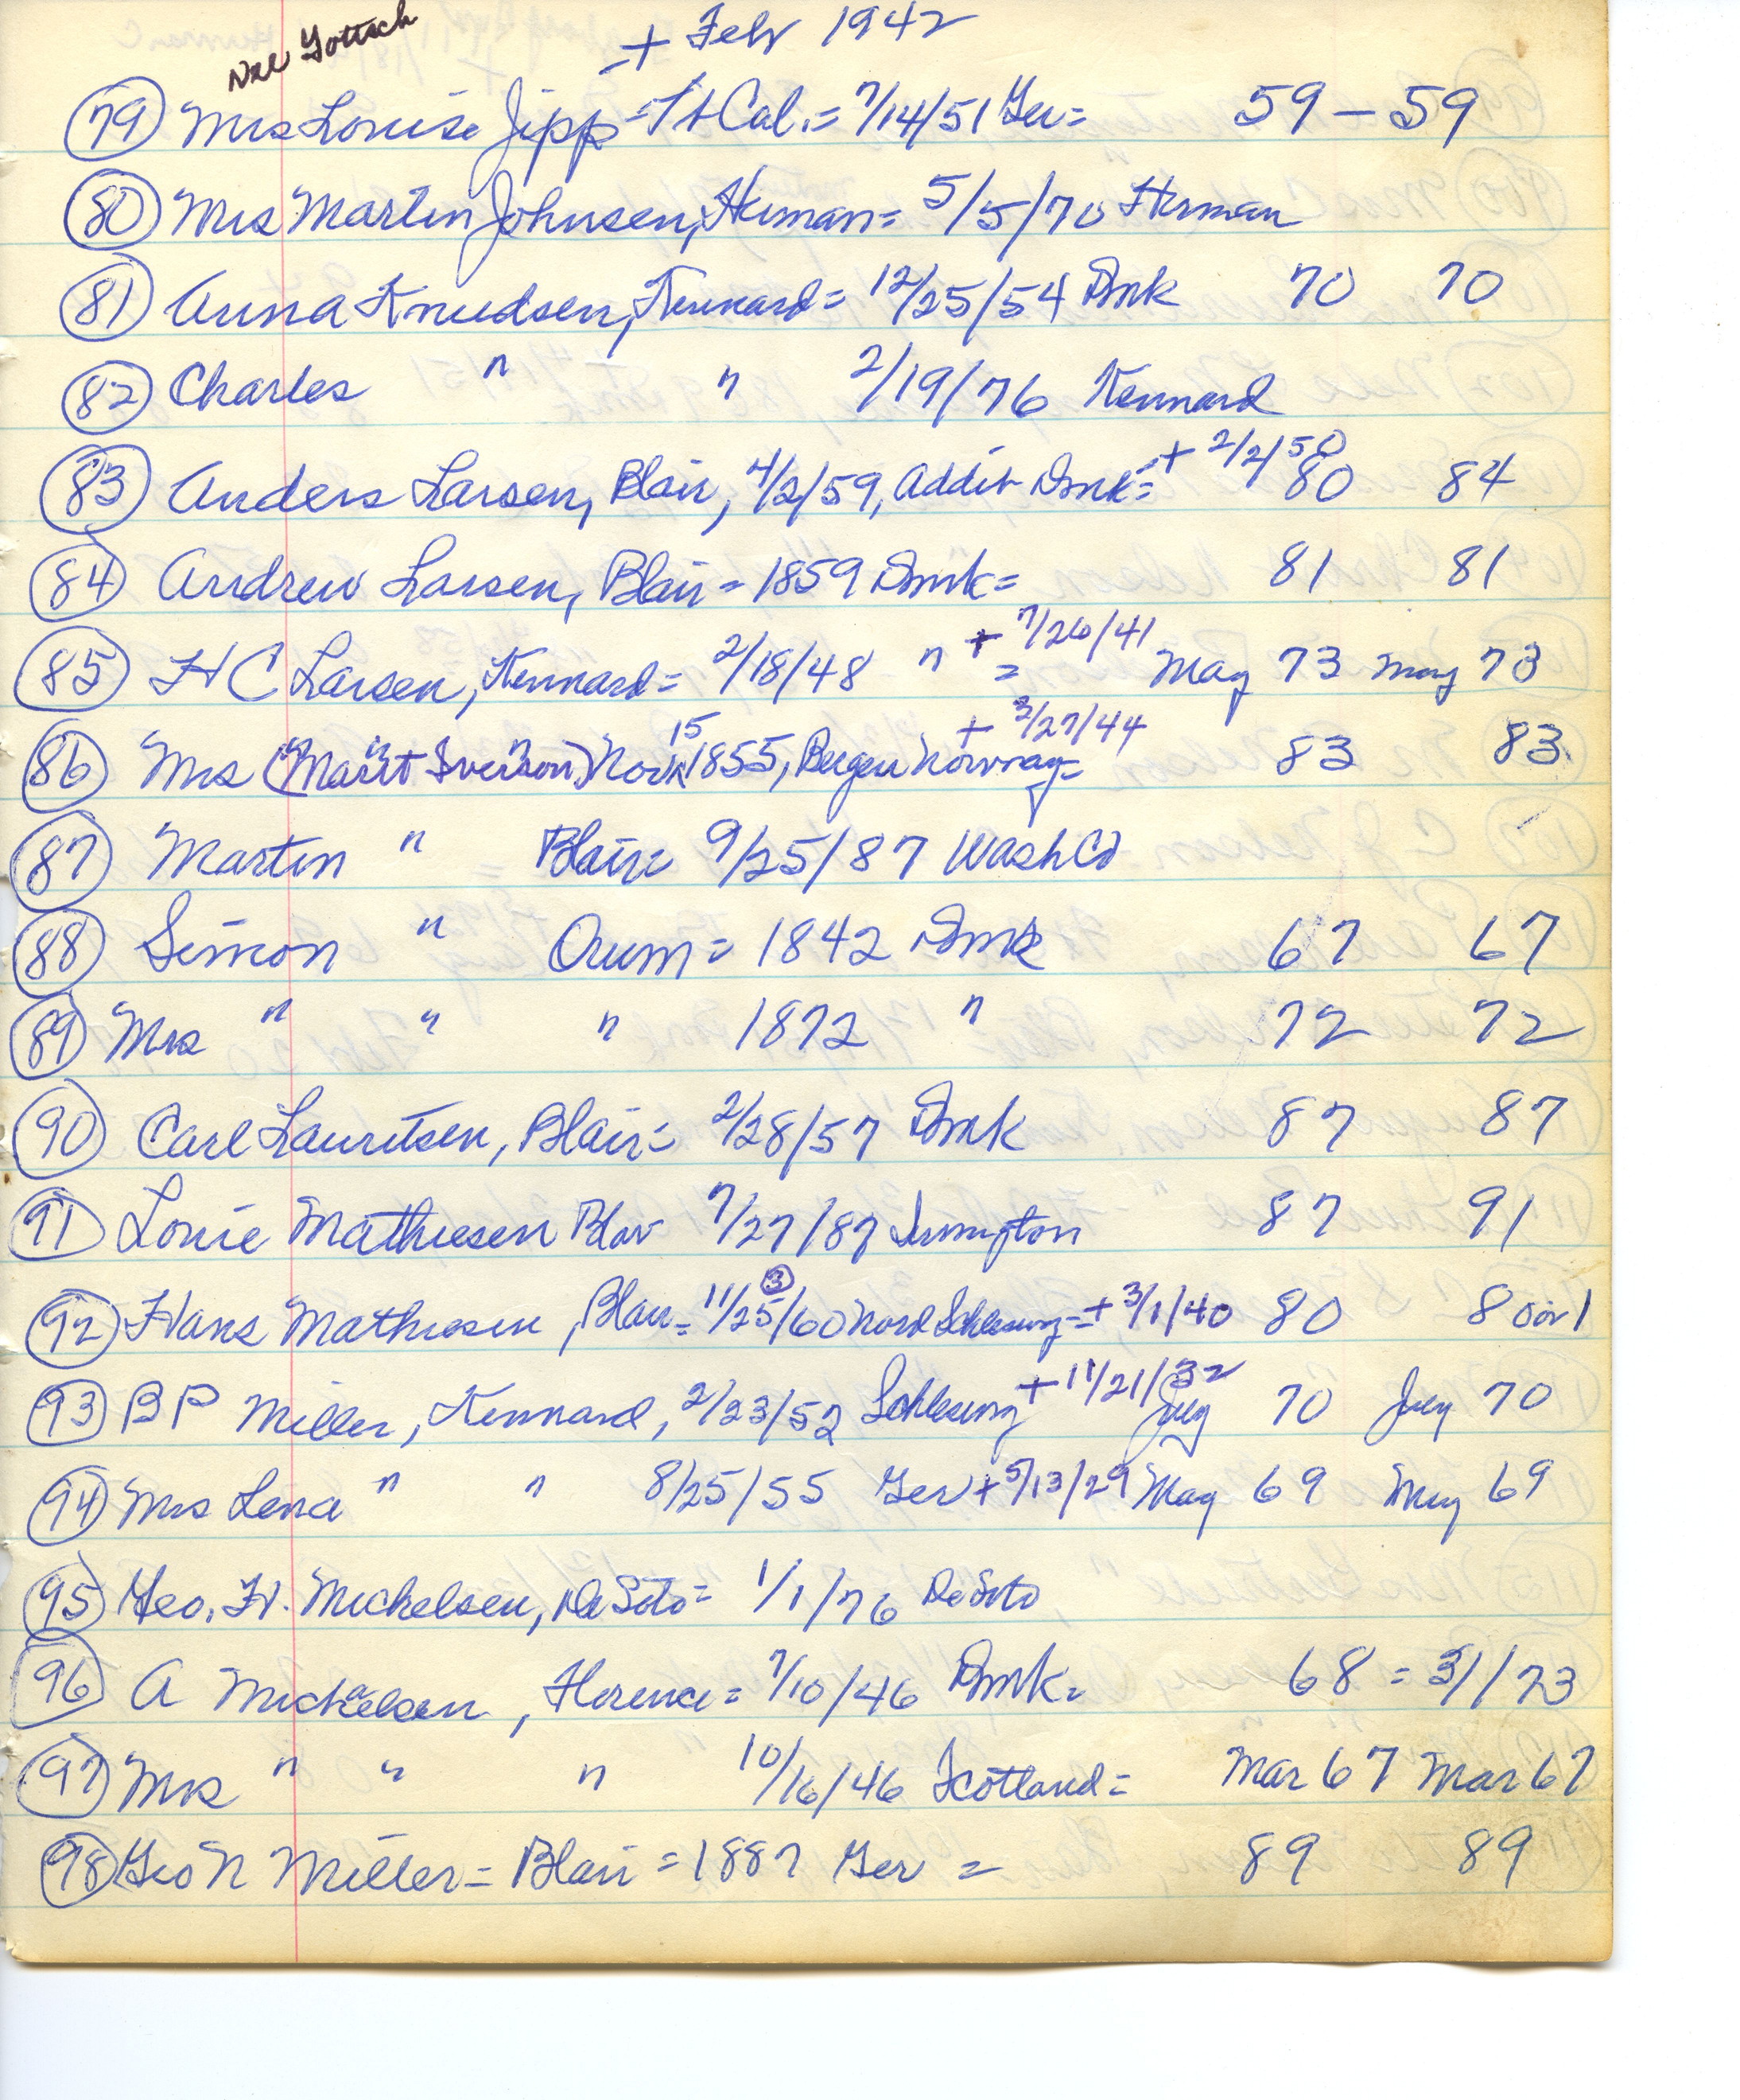 Nee Gottsch + Feb 1942
79 Mrs Louise Jipp = Ft Cal. = 7/14/51 Ger = 59 – 59
80 Mrs Martin Johnsen, Herman = 5/5/70 Herman
81 Anna Knudsen, Kennard = 12/25/54 Dmk 70 70
82 Charles " " 2/19/76 Kennard
83 Anders Larsen, Blair, 4/2/59, Addit Dmk = + 2/2/50 80 84
84 Andrew Larsen, Blair = 1859 Dmk = 81 81
85 H C Larsen, Kennard = 2/18/48 " + 7/26/41 = May 73 May 73
86 Mrs (Marit Iverson) 15 1855, Bergen Norway = + 3/27/44 83 83
87 Martin " Blair 9/25/87 Wash Co
88 Simon " Orum = 1842 Dmk 67 67
89 Mrs " " " 1872 " 72 72
90 Carl Lauritsen, Blair = 2/28/57 Dmk 87 87
91 Louie Mathiesen Blair 7/27/87 Irvington 87 91
92 Hans Mathiesen, Blair = 11/25/60 3 Nord Schleswig = + 3/1/40 80 80 or 1
93 B P Miller, Kennard, 2/23/52 Schleswig + 11/21/32 July 70 July 70
94 Mrs Lena " " 8/25/55 Ger + 5/13/29 May 69 May 69
95 Geo. H. Mickelsen, De Soto = 1/1/76 De Soto
96 A Mickelsen, Florence = 7/10/46 Dmk = 68 = 3/1/23
97 Mrs " " " 10/16/46 Scotland = Mar 67 Mar 67
98 Geo N Miller = Blair = 1887 Ger = 89 89